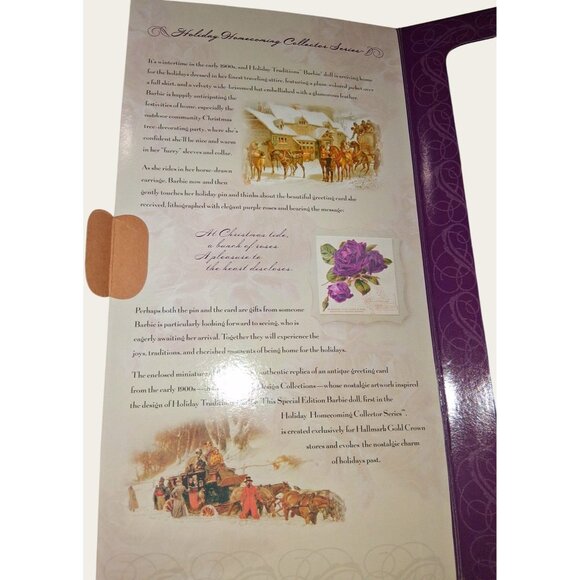 Holiday Homecoming Collector Series™
It's wintertime in the early 1900s, and Holiday Traditions™ Barbie® doll is arriving home
for the holidays dressed in her finest traveling attire, featuring a plum-colored jacket over
a full skirt, and a velvety wide-brimmed hat embellished with a glamorous feather.
Barbie is happily anticipating the
festivities of home, especially the
outdoor community Christmas
tree-decorating party, where she's
confident she'll be nice and warm
in her "furry" sleeves and collar.
As she rides in her horse-drawn
carriage, Barbie now and then
gently touches her holiday pin and thinks about the beautiful greeting card she
received, lithographed with elegant purple roses and bearing the message:
At Christmas tide,
a bunch of roses
A pleasure to
the heart discloses.
Perhaps both the pin and the card are gifts from someone
Barbie is particularly looking forward to seeing, who is
eagerly awaiting her arrival. Together they will experience the
joys, traditions, and cherished moments of being home for the holidays.
The enclosed miniature authentic replica of an antique greeting card
from the early 1900s— Design Collections—whose nostalgic artwork inspired
the design of Holiday Traditions This Special Edition Barbie doll, first in the
Holiday Homecoming Collector Series™,
is created exclusively for Hallmark Gold Crown
stores and evokes the nostalgic charm
of holidays past.